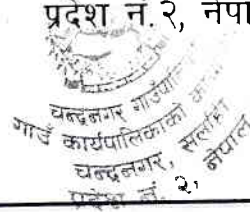 प्रदेश नं. २, नेपा
चन्द्रनगर गाउँपा
गाउँ कार्यपालिकाको का
चन्द्रनगर, सर्लाही
नेपाल
प्रदेश नं. २,